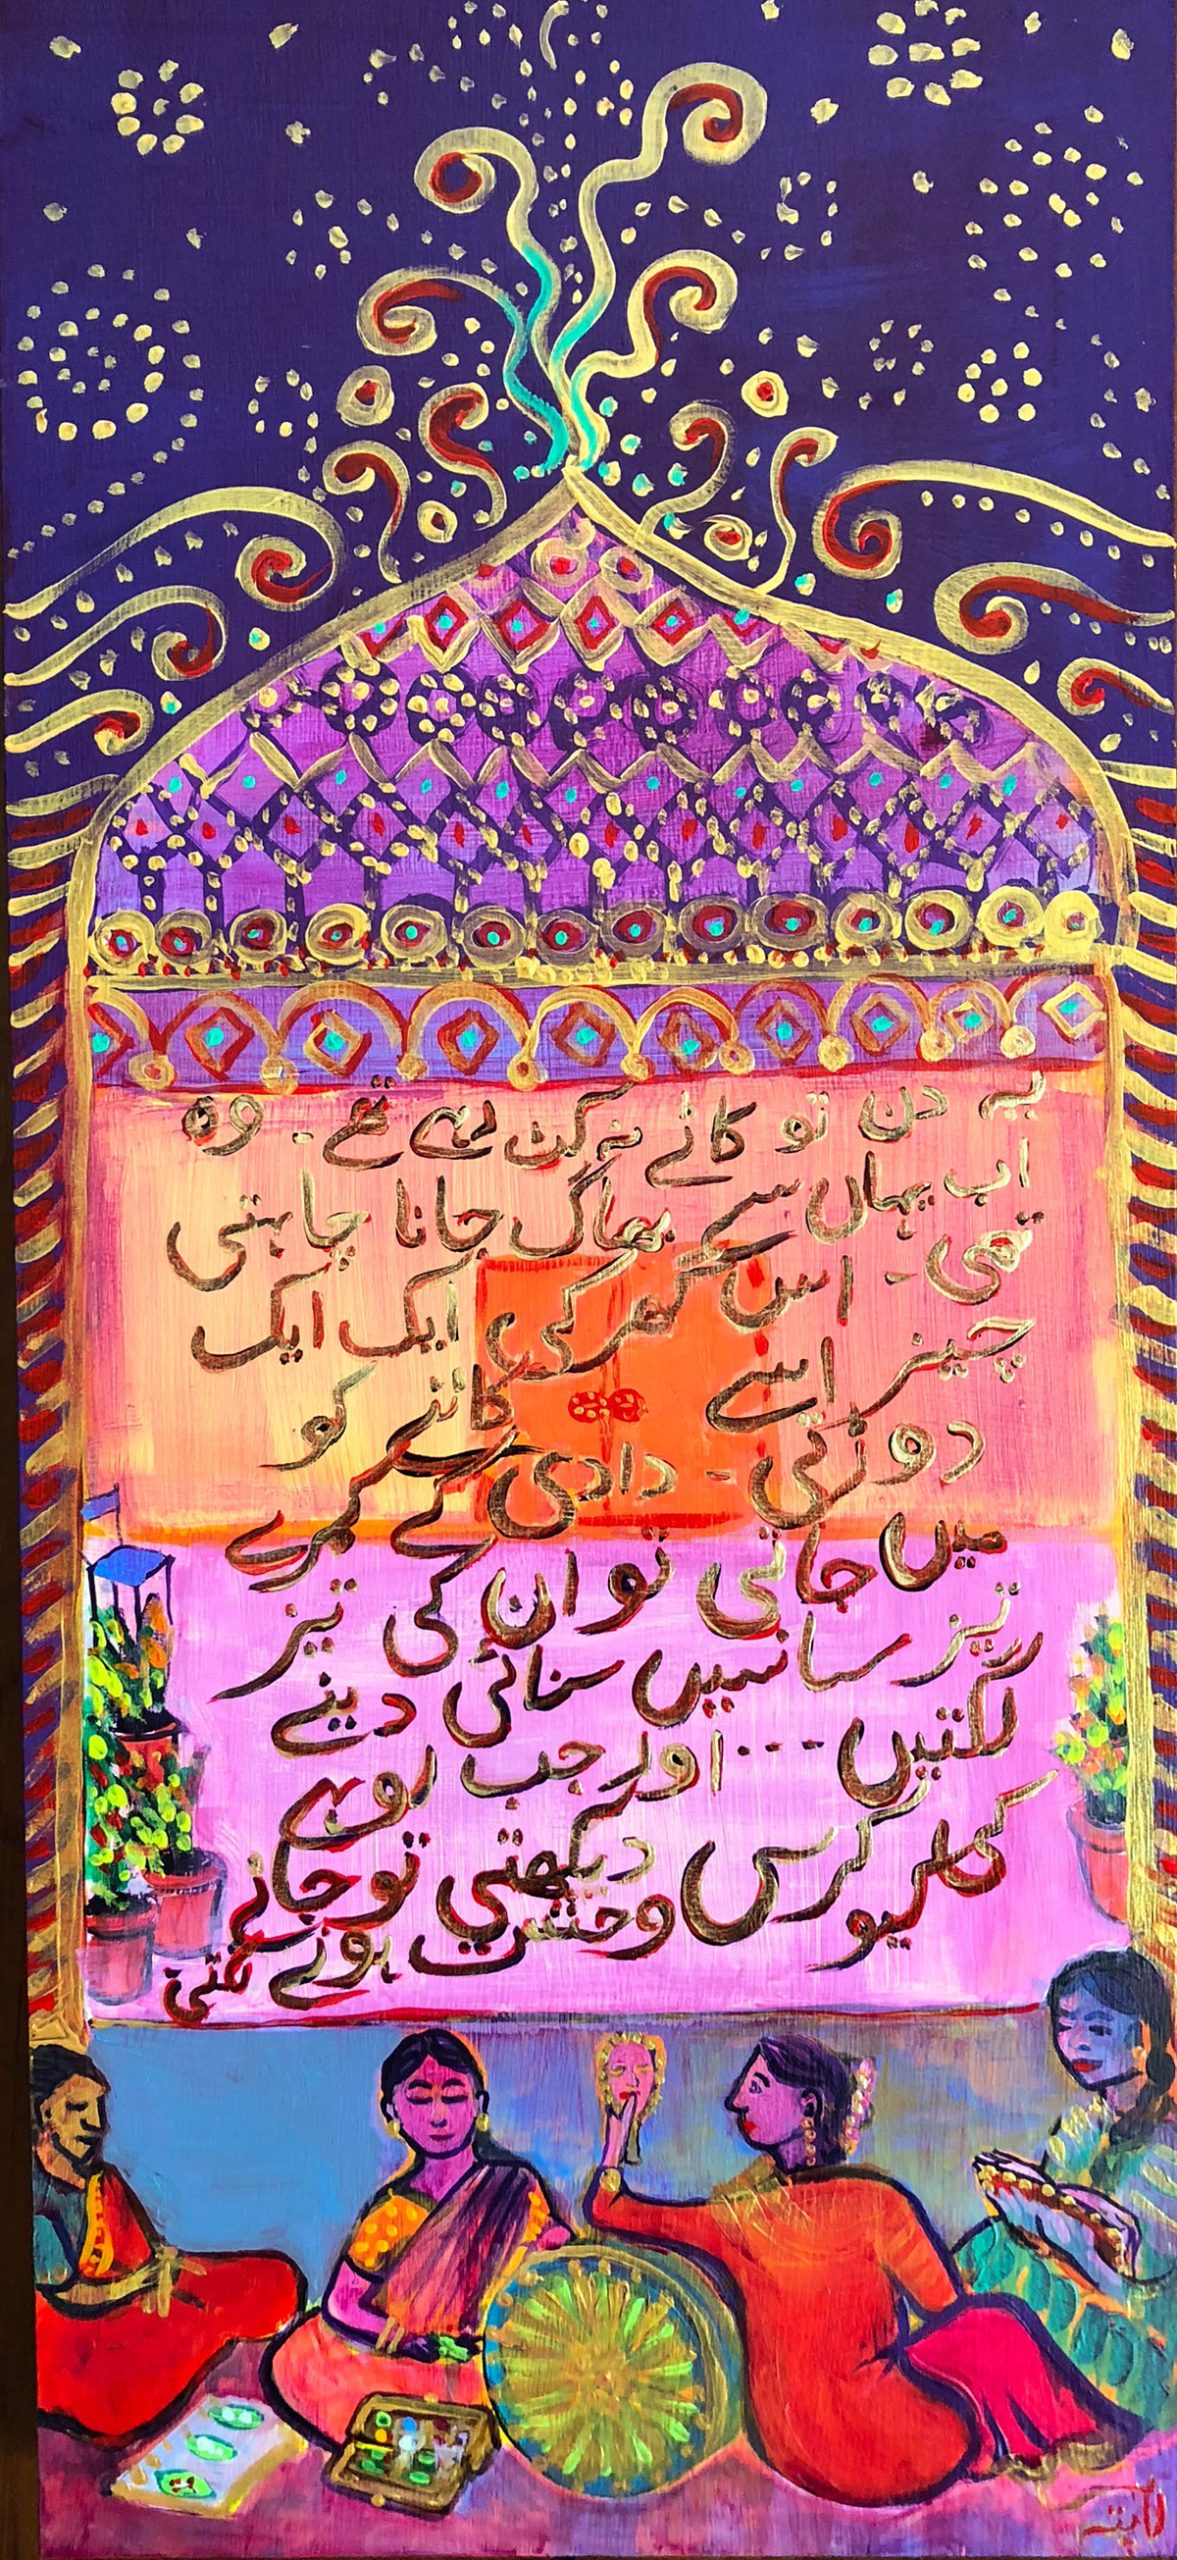 یہ دن تو کاٹے نہ کٹ رہے تھے۔ وہ
اب یہاں سے بھاگ جانا چاہتی
تھی۔ اس گھر کی ایک ایک
چیز اسے کاٹنے کو
دوڑتی۔ دادی کے کمرے
میں جاتی تو ان کی تیز
تیز سانسیں سنائی دینے
لگتیں ... اور جب
دیکھتی تو جانے
کیو وحشت ہونے لگتی